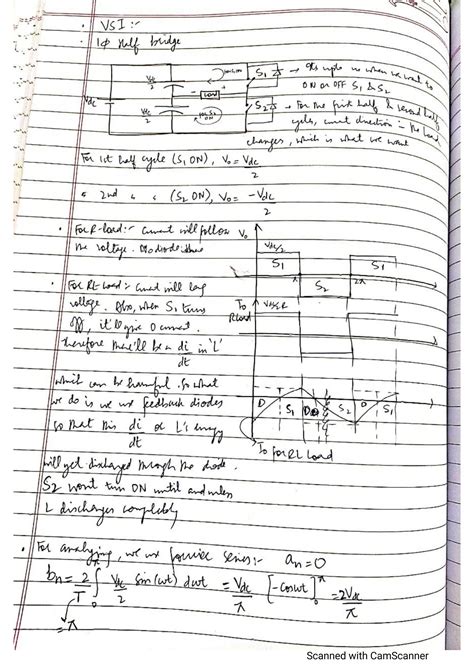 VSI :-
1ϕ Half bridge
Vdc/2 S1 → It's upto us when we want to
LOAD ON or OFF S1 & S2
Vdc Vdc/2 S2 → For the first half & second half
cycles, current direction in the load
changes, which is what we want
For 1st half cycle (S1 ON), Vo = Vdc/2
" 2nd " " (S2 ON), Vo = -Vdc/2
For R-load :- Current will follow Vo
the voltage. No diode
Vdc/2
S1 S1
π 2π
S2
For RL-Load :- Current will lag
voltage. Also, when S1 turns
off, it'll give 0 current.
therefore there'll be a di/dt in 'L'
Io Vdc/2R
R load
which can be harmful. So what
we do is we use feedback diodes
so that this di/dt or L's energy
D S1 S2 D S1
Io for RL Load
will get discharged through the diode.
S2 won't turn ON until and unless
L discharges completely
For analyzing, we use fourier series :- an = 0
bn = 2/T ∫ Vdc/2 sin(wt) dwt = Vdc/π [-coswt] = 2Vdc/π
= π
Scanned with CamScanner